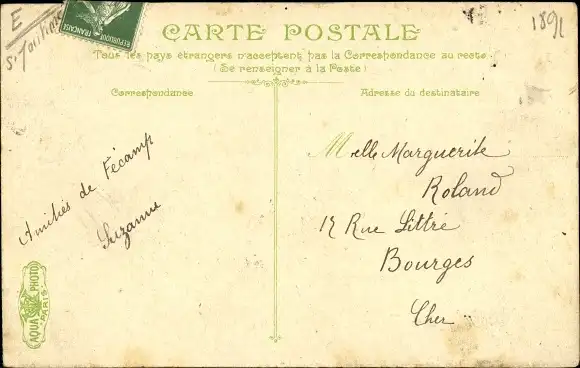 E
REPUBLIQUE FRANÇAISE
1891
CARTE POSTALE
Tous les pays étrangers n'acceptent pas la Correspondance au recto
(Se renseigner à la Poste)
Correspondance
Amitiés de Fécamp
Suzanne
AQUA PHOTO
PARIS
Adresse du destinataire
Melle Marguerite
Roland
Rue Littré
Bourges
Cher